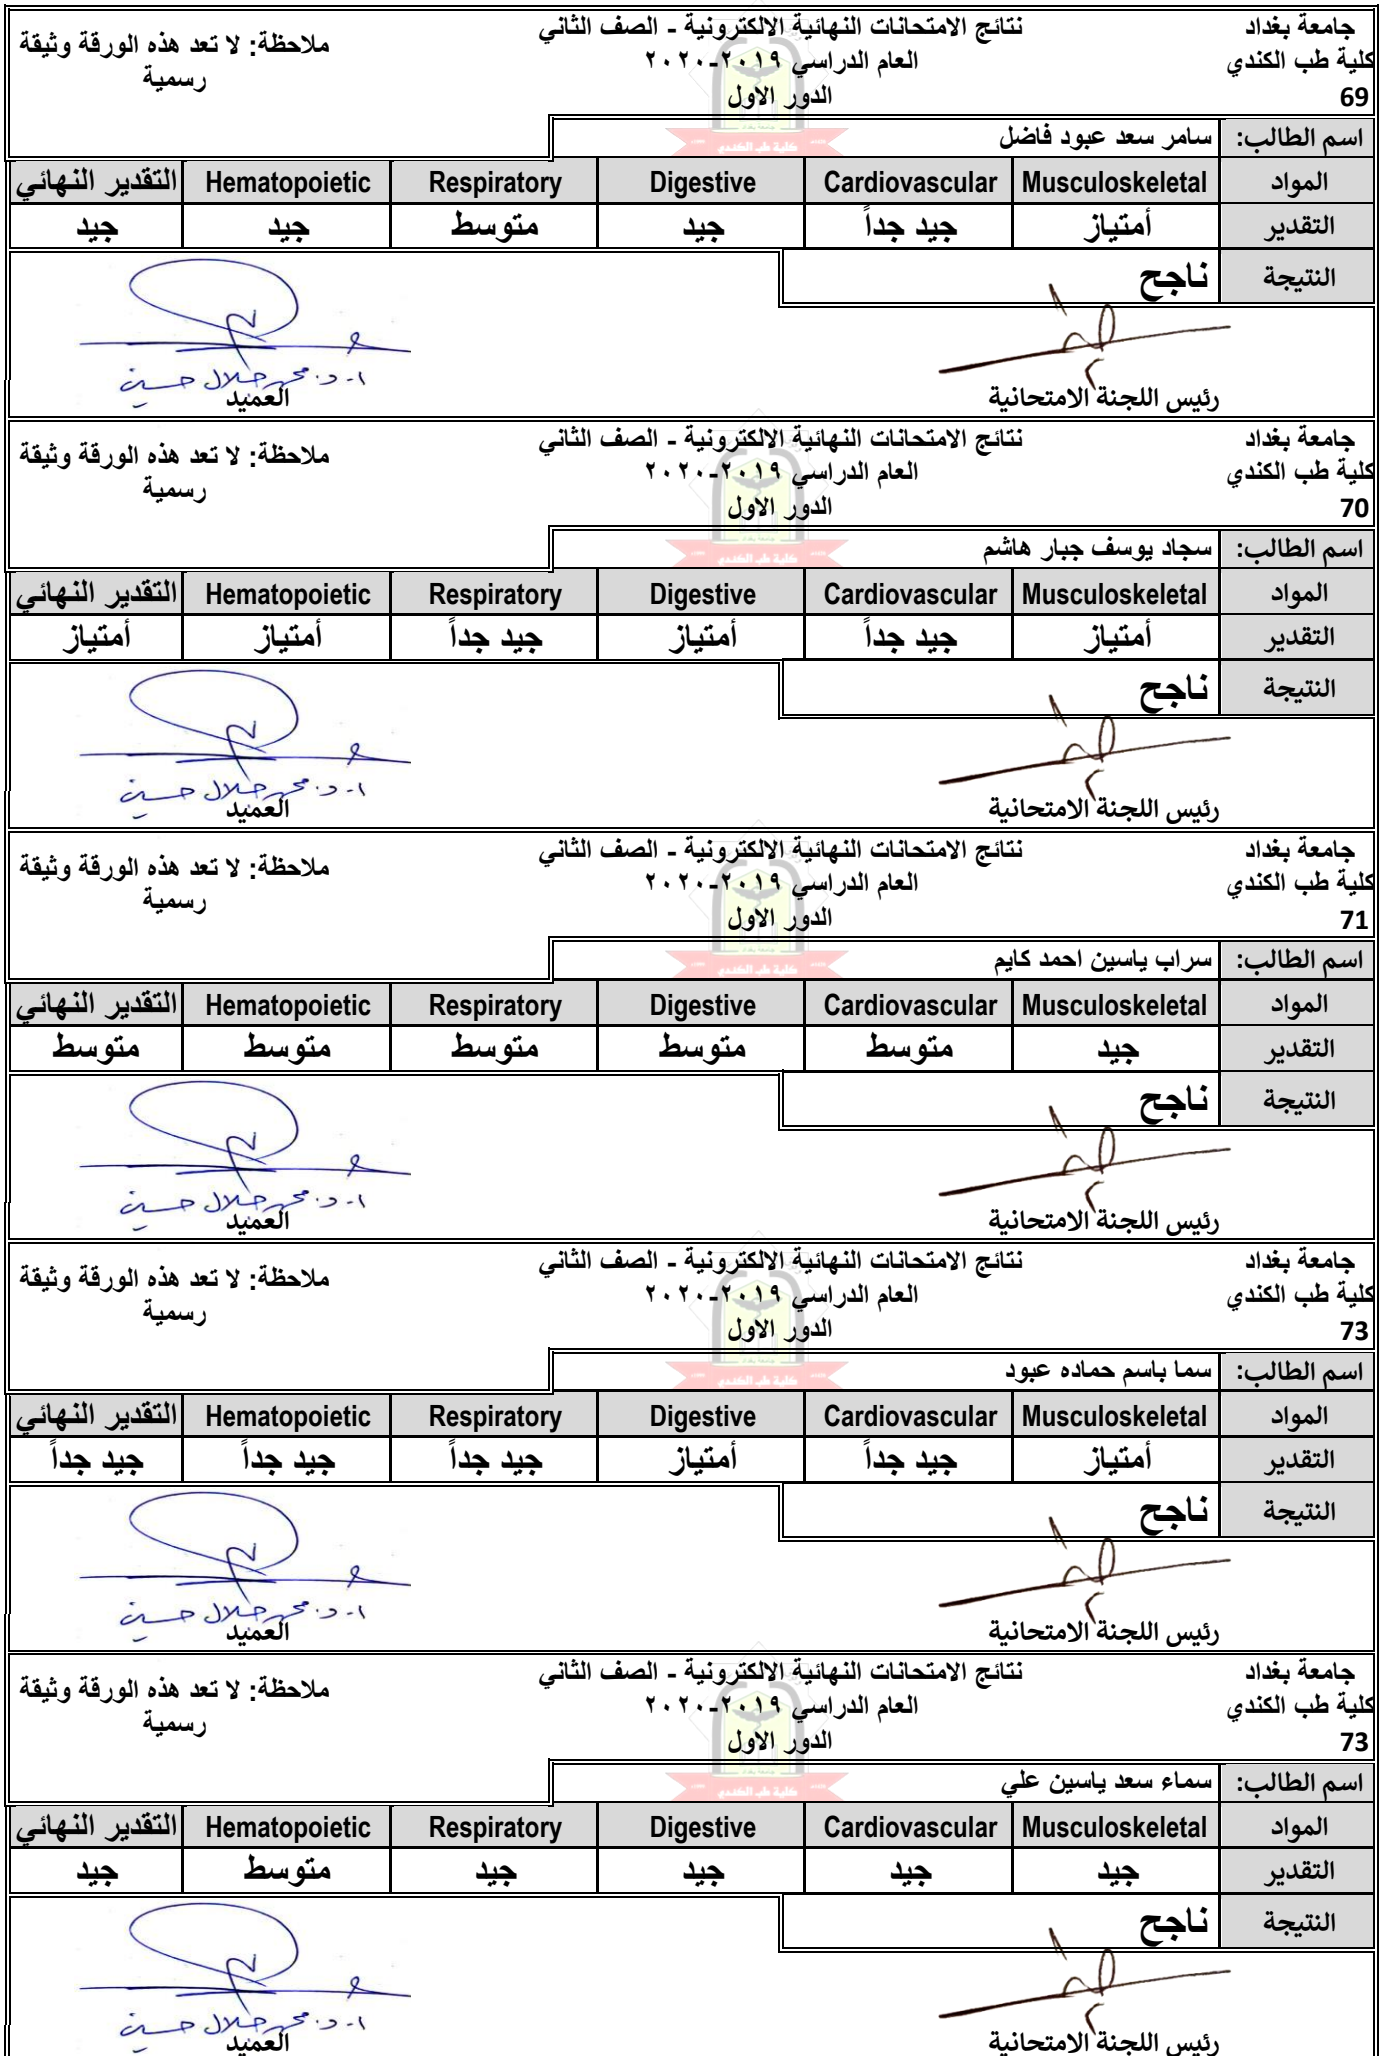 جامعة بغداد
كلية طب الكندي
69
نتائج الامتحانات النهائية الالكترونية - الصف الثاني
العام الدراسي ٢٠١٩-٢٠٢٠
الدور الاول
ملاحظة: لا تعد هذه الورقة وثيقة
رسمية
كلية طب الكندي
اسم الطالب: سامر سعد عبود فاضل
المواد Musculoskeletal Cardiovascular Digestive Respiratory Hematopoietic التقدير النهائي
التقدير أمتياز جيد جداً جيد متوسط جيد جيد
النتيجة ناجح
أ. د. محمد جلال حسين
رئيس اللجنة الامتحانية العميد
جامعة بغداد
كلية طب الكندي
70
نتائج الامتحانات النهائية الالكترونية - الصف الثاني
العام الدراسي ٢٠١٩-٢٠٢٠
الدور الاول
ملاحظة: لا تعد هذه الورقة وثيقة
رسمية
كلية طب الكندي
اسم الطالب: سجاد يوسف جبار هاشم
المواد Musculoskeletal Cardiovascular Digestive Respiratory Hematopoietic التقدير النهائي
التقدير أمتياز جيد جداً أمتياز جيد جداً أمتياز أمتياز
النتيجة ناجح
أ. د. محمد جلال حسين
رئيس اللجنة الامتحانية العميد
جامعة بغداد
كلية طب الكندي
71
نتائج الامتحانات النهائية الالكترونية - الصف الثاني
العام الدراسي ٢٠١٩-٢٠٢٠
الدور الاول
ملاحظة: لا تعد هذه الورقة وثيقة
رسمية
كلية طب الكندي
اسم الطالب: سراب ياسين احمد كايم
المواد Musculoskeletal Cardiovascular Digestive Respiratory Hematopoietic التقدير النهائي
التقدير جيد متوسط متوسط متوسط متوسط متوسط
النتيجة ناجح
أ. د. محمد جلال حسين
رئيس اللجنة الامتحانية العميد
جامعة بغداد
كلية طب الكندي
73
نتائج الامتحانات النهائية الالكترونية - الصف الثاني
العام الدراسي ٢٠١٩-٢٠٢٠
الدور الاول
ملاحظة: لا تعد هذه الورقة وثيقة
رسمية
كلية طب الكندي
اسم الطالب: سما باسم حماده عبود
المواد Musculoskeletal Cardiovascular Digestive Respiratory Hematopoietic التقدير النهائي
التقدير أمتياز جيد جداً أمتياز جيد جداً جيد جداً جيد جداً
النتيجة ناجح
أ. د. محمد جلال حسين
رئيس اللجنة الامتحانية العميد
جامعة بغداد
كلية طب الكندي
73
نتائج الامتحانات النهائية الالكترونية - الصف الثاني
العام الدراسي ٢٠١٩-٢٠٢٠
الدور الاول
ملاحظة: لا تعد هذه الورقة وثيقة
رسمية
كلية طب الكندي
اسم الطالب: سماء سعد ياسين علي
المواد Musculoskeletal Cardiovascular Digestive Respiratory Hematopoietic التقدير النهائي
التقدير جيد جيد جيد جيد متوسط جيد
النتيجة ناجح
أ. د. محمد جلال حسين
رئيس اللجنة الامتحانية العميد